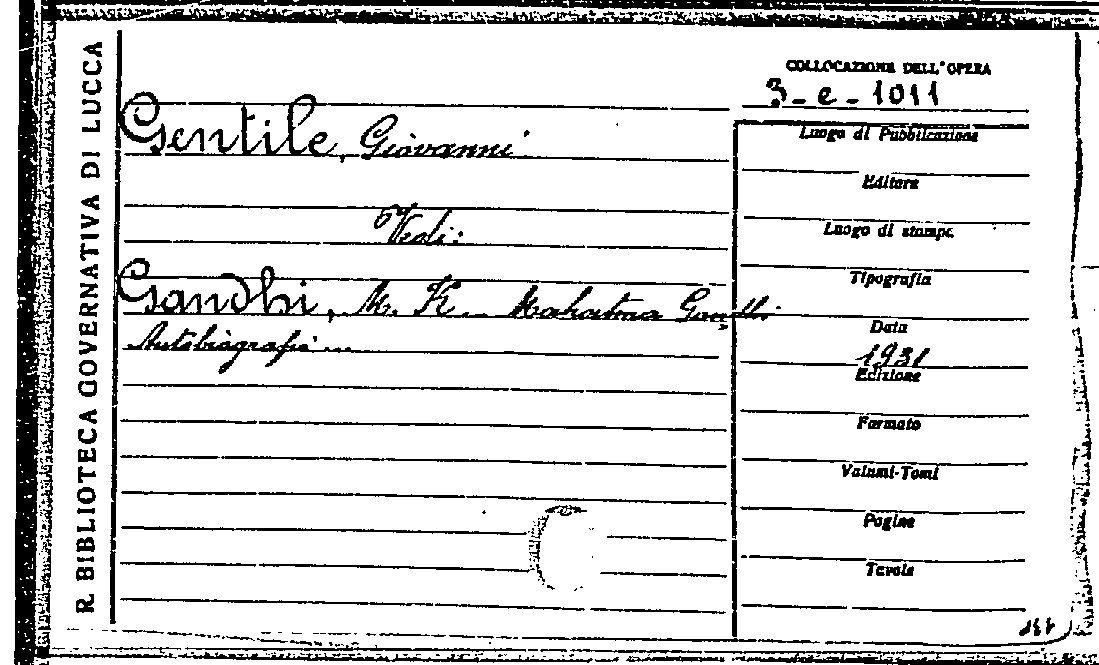 R. BIBLIOTECA GOVERNATIVA DI LUCCA
COLLOCAZIONE DELL'OPERA
3-e-1011
Gentile, Giovanni
Vedi:
Gandhi, M. K. - Mahatma Gandhi
Autobiografia...
Luogo di Pubblicazione
Editore
Luogo di stampa
Tipografia
Data
1931
Edizione
Formato
Volumi-Tomi
Pagine
Tavole